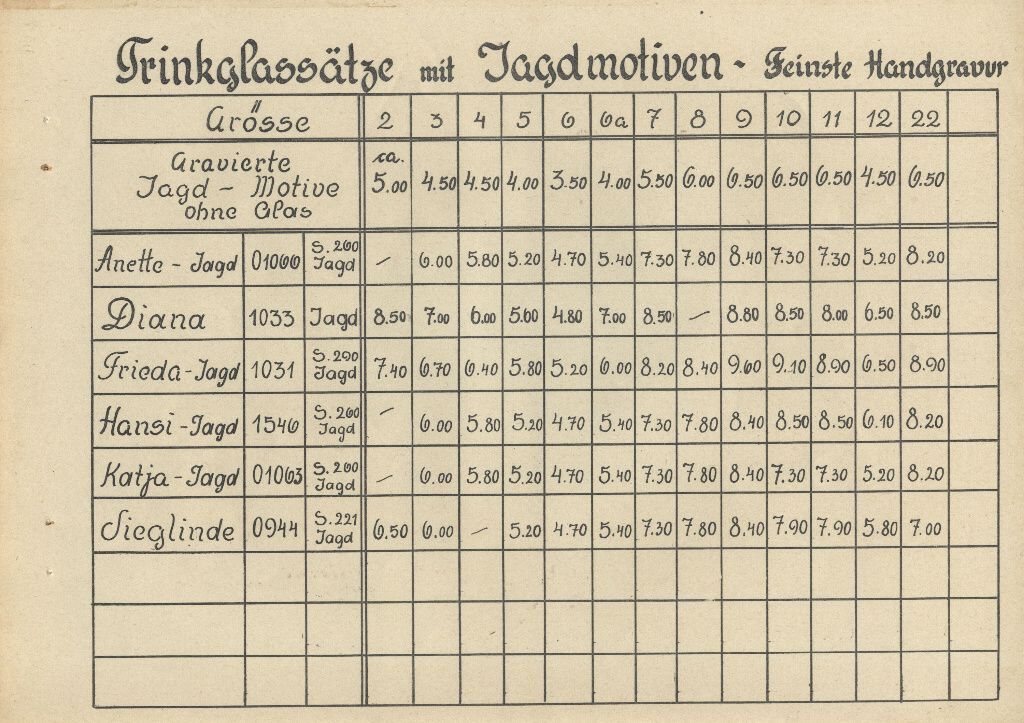 Trinkglassätze mit Jagdmotiven - Feinste Handgravur
Grösse 2 3 4 5 6 6a 7 8 9 10 11 12 22
Gravierte
Jagd - Motive
ohne Glas
ca.
5.00 4.50 4.50 4.00 3.50 4.00 5.50 6.00 6.50 6.50 6.50 4.50 6.50
Anette - Jagd 01066 S. 260 Jagd - 6.00 5.80 5.20 4.70 5.40 7.30 7.80 8.40 7.30 7.30 5.20 8.20
Diana 1033 Jagd 8.50 7.00 6.00 5.60 4.80 7.00 8.50 - 8.80 8.50 8.00 6.50 8.50
Frieda - Jagd 1031 S. 290 Jagd 7.40 6.70 6.40 5.80 5.20 6.00 8.20 8.40 9.60 9.10 8.90 6.50 8.90
Hansi - Jagd 1546 S. 260 Jagd - 6.00 5.80 5.20 4.70 5.40 7.30 7.80 8.40 8.50 8.50 6.10 8.20
Katja - Jagd 01063 S. 260 Jagd - 6.00 5.80 5.20 4.70 5.40 7.30 7.80 8.40 7.30 7.30 5.20 8.20
Sieglinde 0944 S. 221 Jagd 6.50 6.00 - 5.20 4.70 5.40 7.30 7.80 8.40 7.90 7.90 5.80 7.00